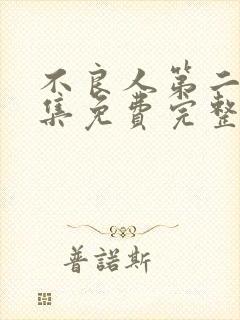 不良人第二
集免费完整
普諾斯